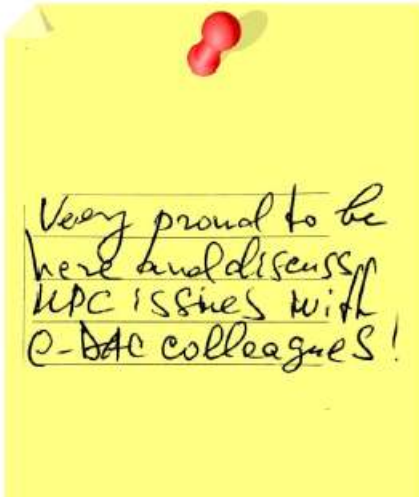 Very proud to be
here and discuss
HPC issues with
C-DAC colleagues!